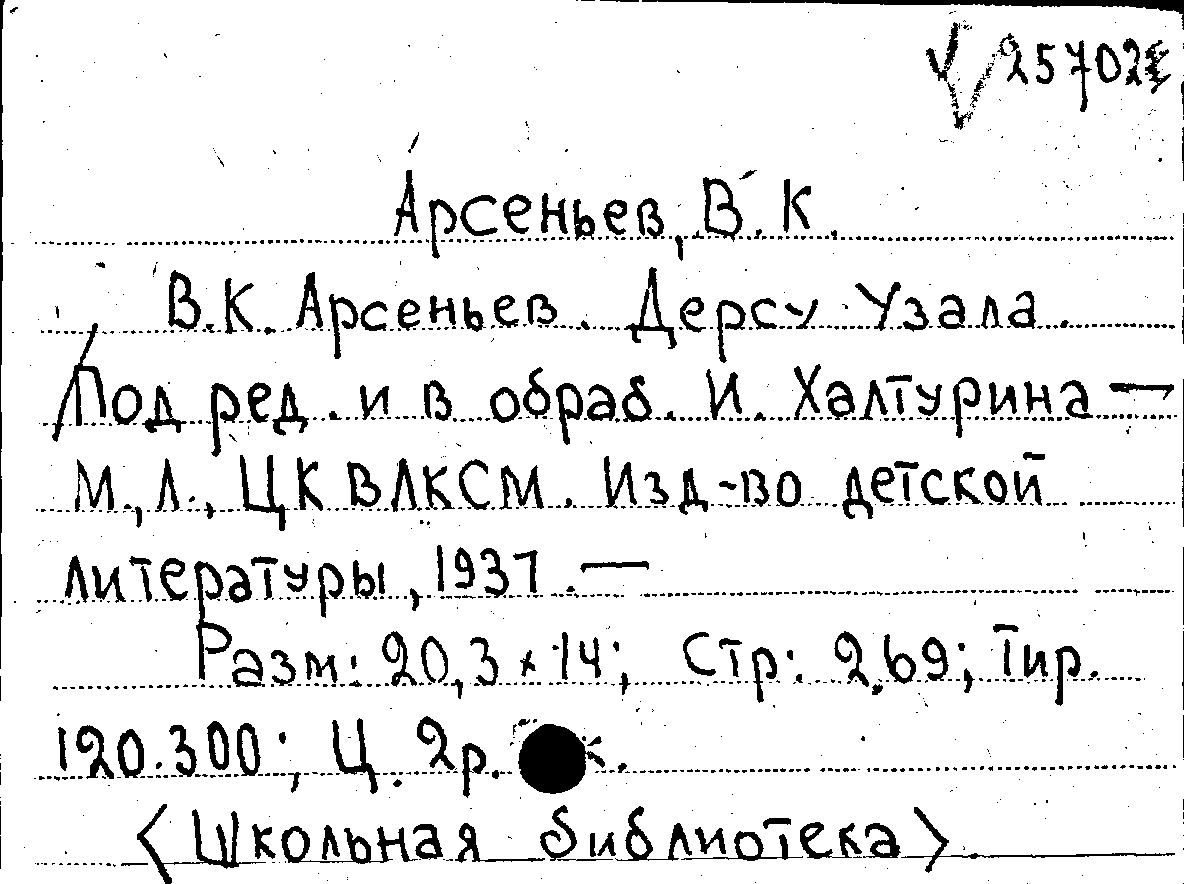 25702
Арсеньев, В. К.
В.К. Арсеньев. Дерсу Узала.
Под ред. и в обраб. И. Халтурина —
М., Л., ЦК ВЛКСМ. Изд-во детской
литературы, 1937. —
Разм: 20,3 × 14; Стр: 269; Тир.
120.300; Ц. 2р. к.
〈Школьная библиотека〉.